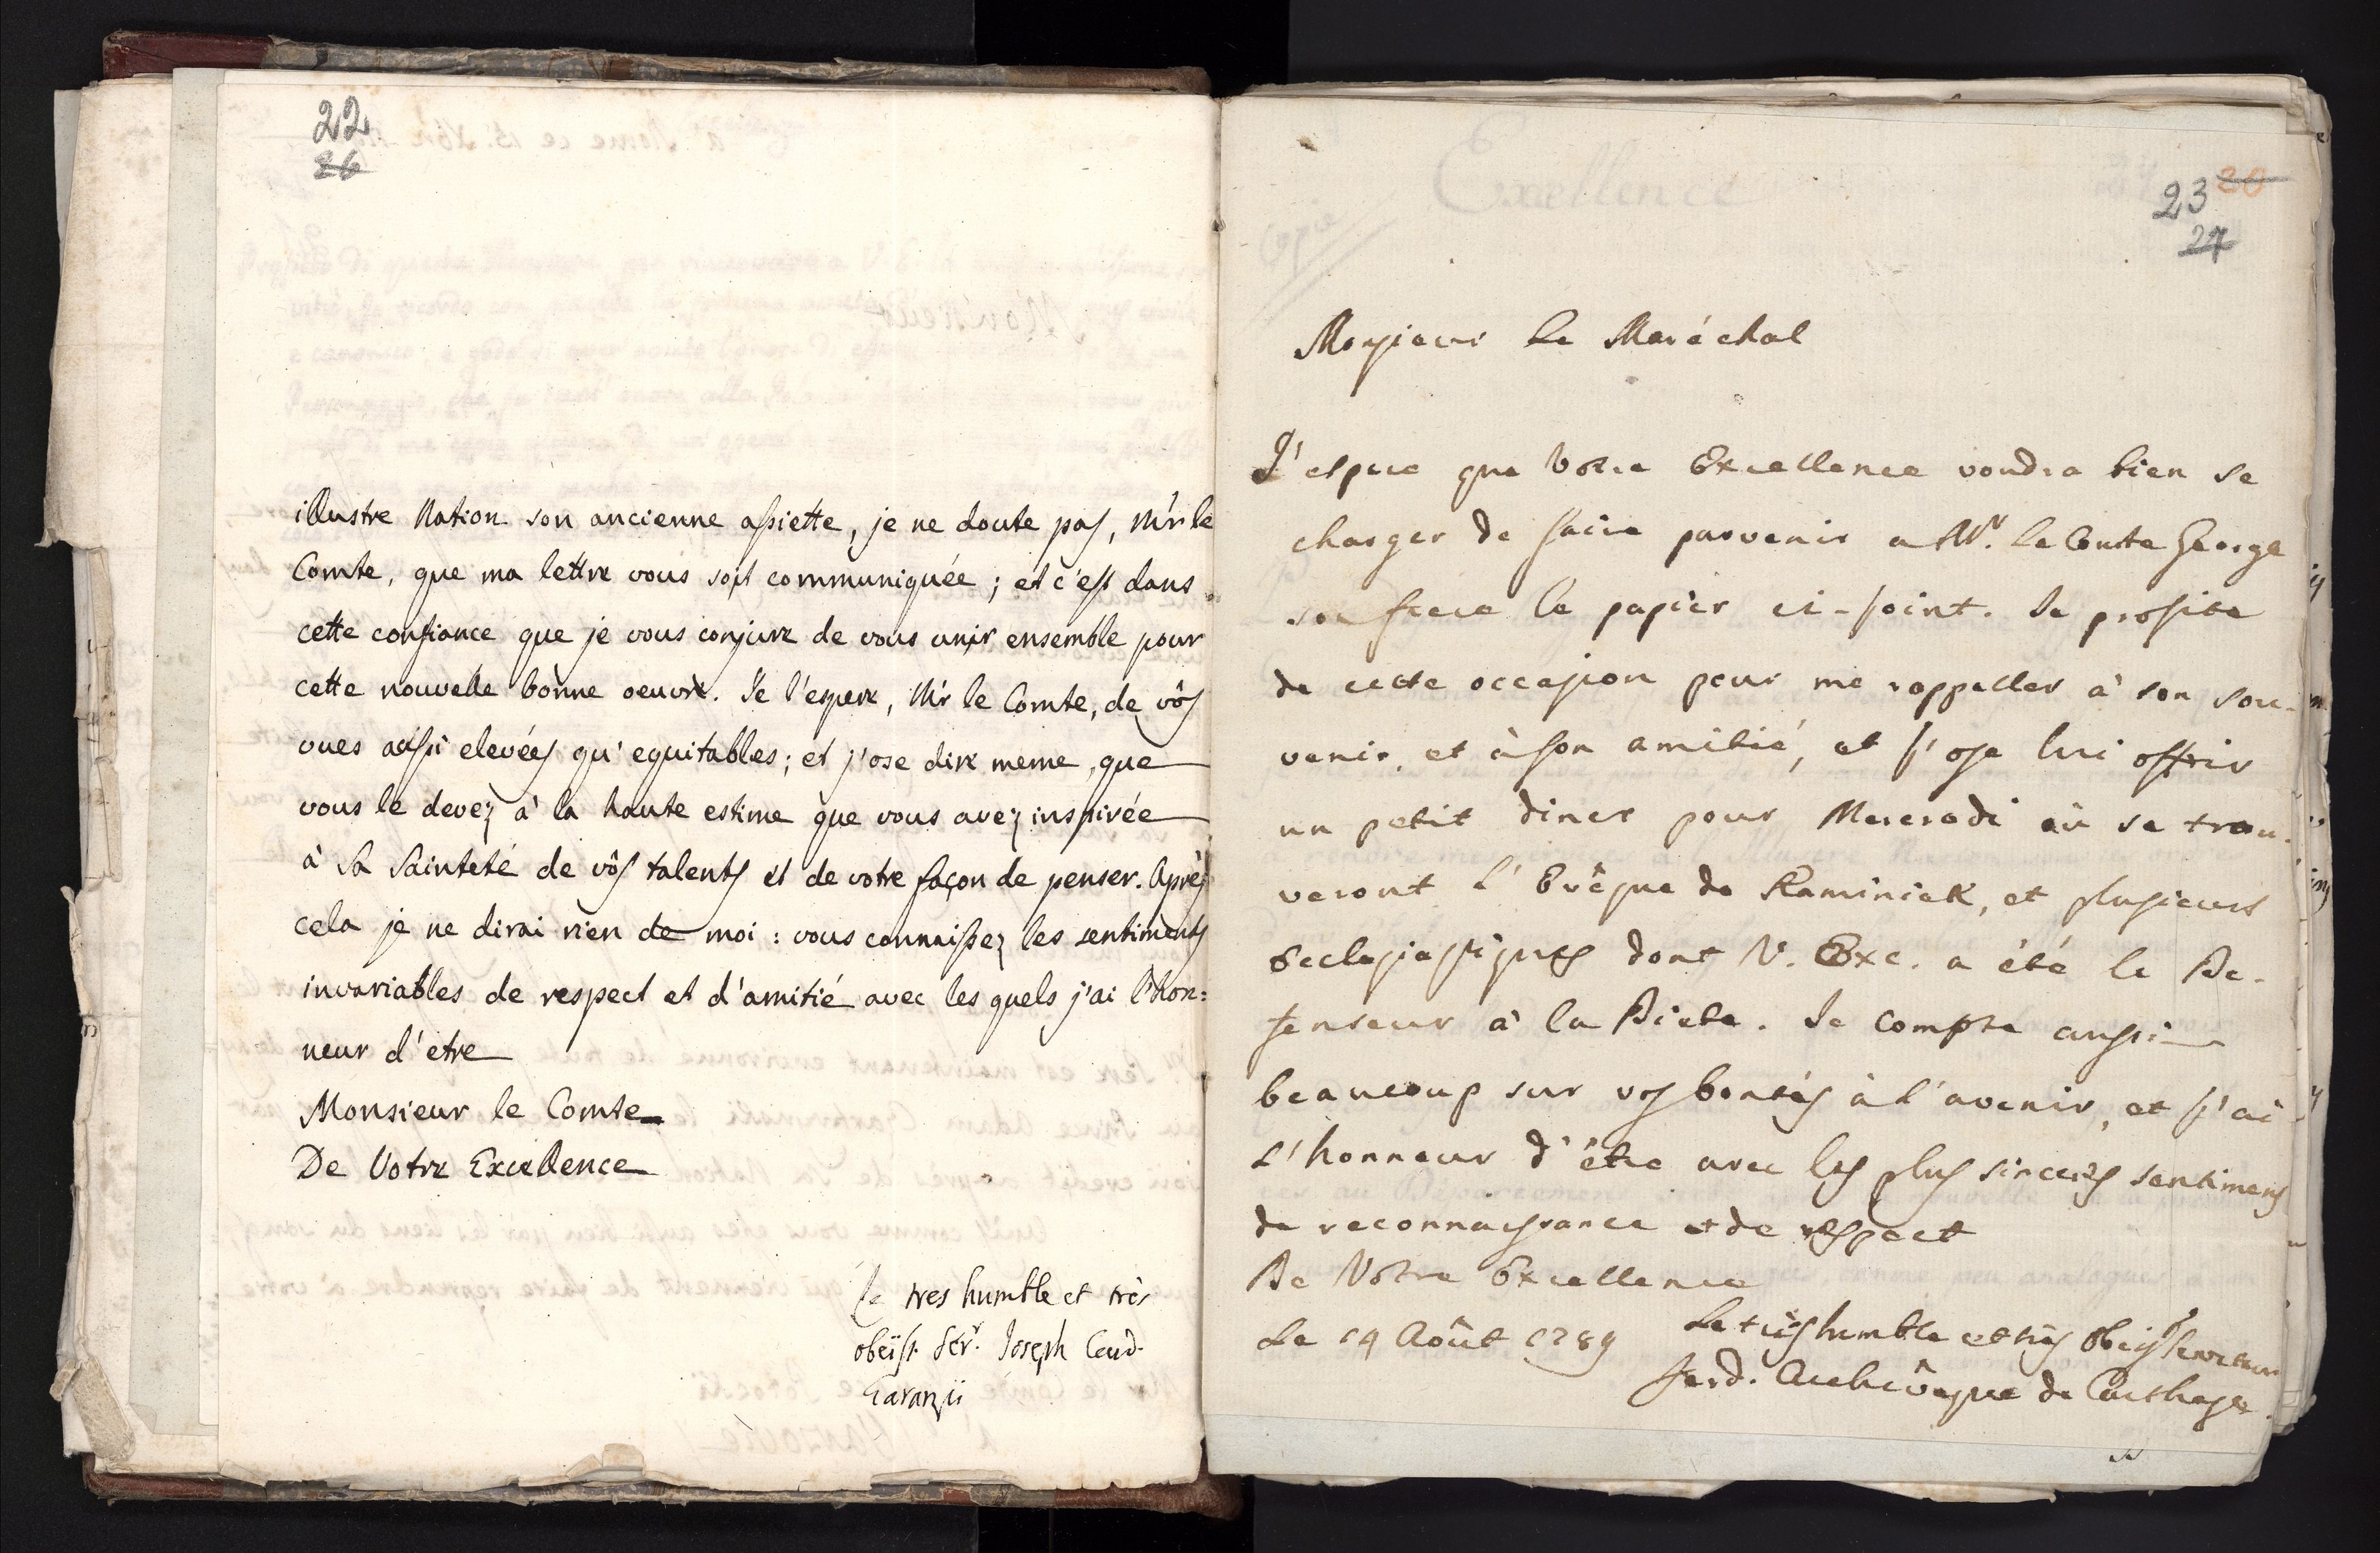 22
26
illustre Nation son ancienne assiette, je ne doute pas, Mr le
Comte, que ma lettre vous soit communiquée; et c'est dans
cette confiance que je vous conjure de vous unir ensemble pour
cette nouvelle bonne oeuvre. Je l'espere, Mr le Comte, de vôs
vues aussi elevées qu'equitables; et j'ose dire meme, que
vous le devez à la haute estime que vous avez inspirée
à Sa Sainteté de vôs talents et de votre façon de penser. Après
cela je ne dirai rien de moi: vous connaissez les sentiments
invariables de respect et d'amitié avec les quels j'ai l'hon:
neur d'etre
Monsieur le Comte
De Votre Excellence
Le tres humble et très
obeïss. Ser.r Joseph Card.
Garanzii
23 20
27
Monsieur le Maréchal
J'espere que Votre Excellence voudra bien se
charger de faire parvenir a Mr. le Comte George
son frere le papier ci-joint. Je profite
de cette occasion pour me rappeller à son sou-
venir, et à son amitié, et j'ose lui offrir
un petit diner pour Mercredi où se trou-
veront l'Evêque de Kaminiek, et plusieurs
Ecclesiastiques dont V. Exc. a été le De-
fenseur à la Diete. Je compte aussi
beaucoup sur vos bontés à l'avenir, et j'ai
l'honneur d'être avec les plus sinceres sentimens
de reconnaissance et de respect
De Votre Excellence
Le 14 Août 1789
Le très humble et très obeiss serviteur
Ferd. Archevêque de Carthage.